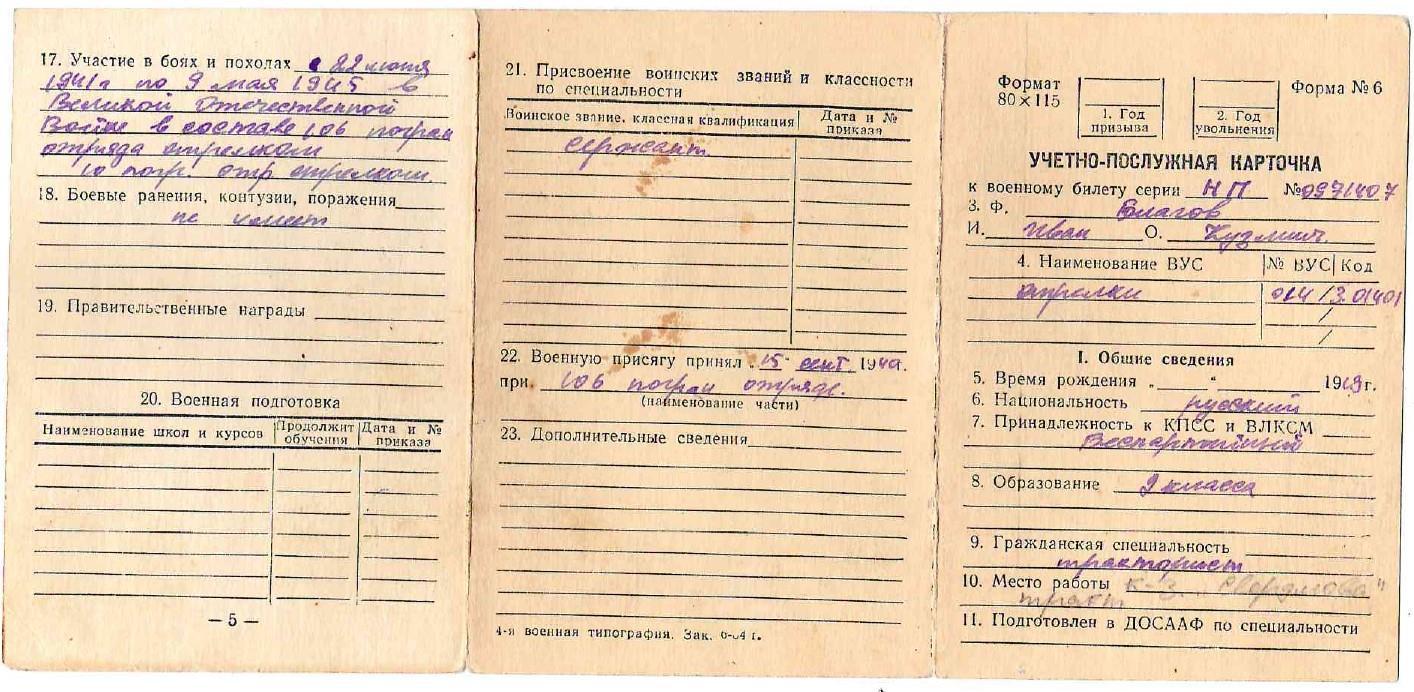 17. Участие в боях и походах с 22 июня
1941 г по 9 мая 1945 в
Великой Отечественной
Войне в составе 106 погран
отряда стрелком
10 погр. отр стрелком.
18. Боевые ранения, контузии, поражения
не имеет
19. Правительственные награды
20. Военная подготовка
Наименование школ и курсов
Продолжит обучения
Дата и № приказа
— 5 —
21. Присвоение воинских званий и классности
по специальности
Воинское звание, классная квалификация
Дата и № приказа
сержант
22. Военную присягу принял „15" сент 1940г.
при 106 погран отряде.
(наименование части)
23. Дополнительные сведения
4-я военная типография. Зак.
Формат
80×115
1. Год
призыва
2. Год
увольнения
Форма № 6
УЧЕТНО-ПОСЛУЖНАЯ КАРТОЧКА
к военному билету серии НП № 0971407
3. Ф. Благов
И. Иван О. Кузмич.
4. Наименование ВУС № ВУС Код
стрелки 014 /3.01401
/
/
I. Общие сведения
5. Время рождения „ " 1919 г.
6. Национальность русский
7. Принадлежность к КПСС и ВЛКСМ
беспартийный
8. Образование
класса
9. Гражданская специальность
тракторист
10. Место работы к-з. „Свердлова"
тракт
11. Подготовлен в ДОСААФ по специальности